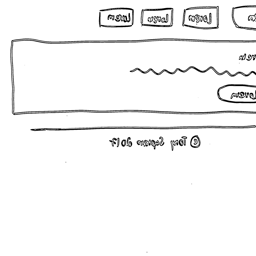 Lorem Lorem Lorem
Lorem
© Tony 2017